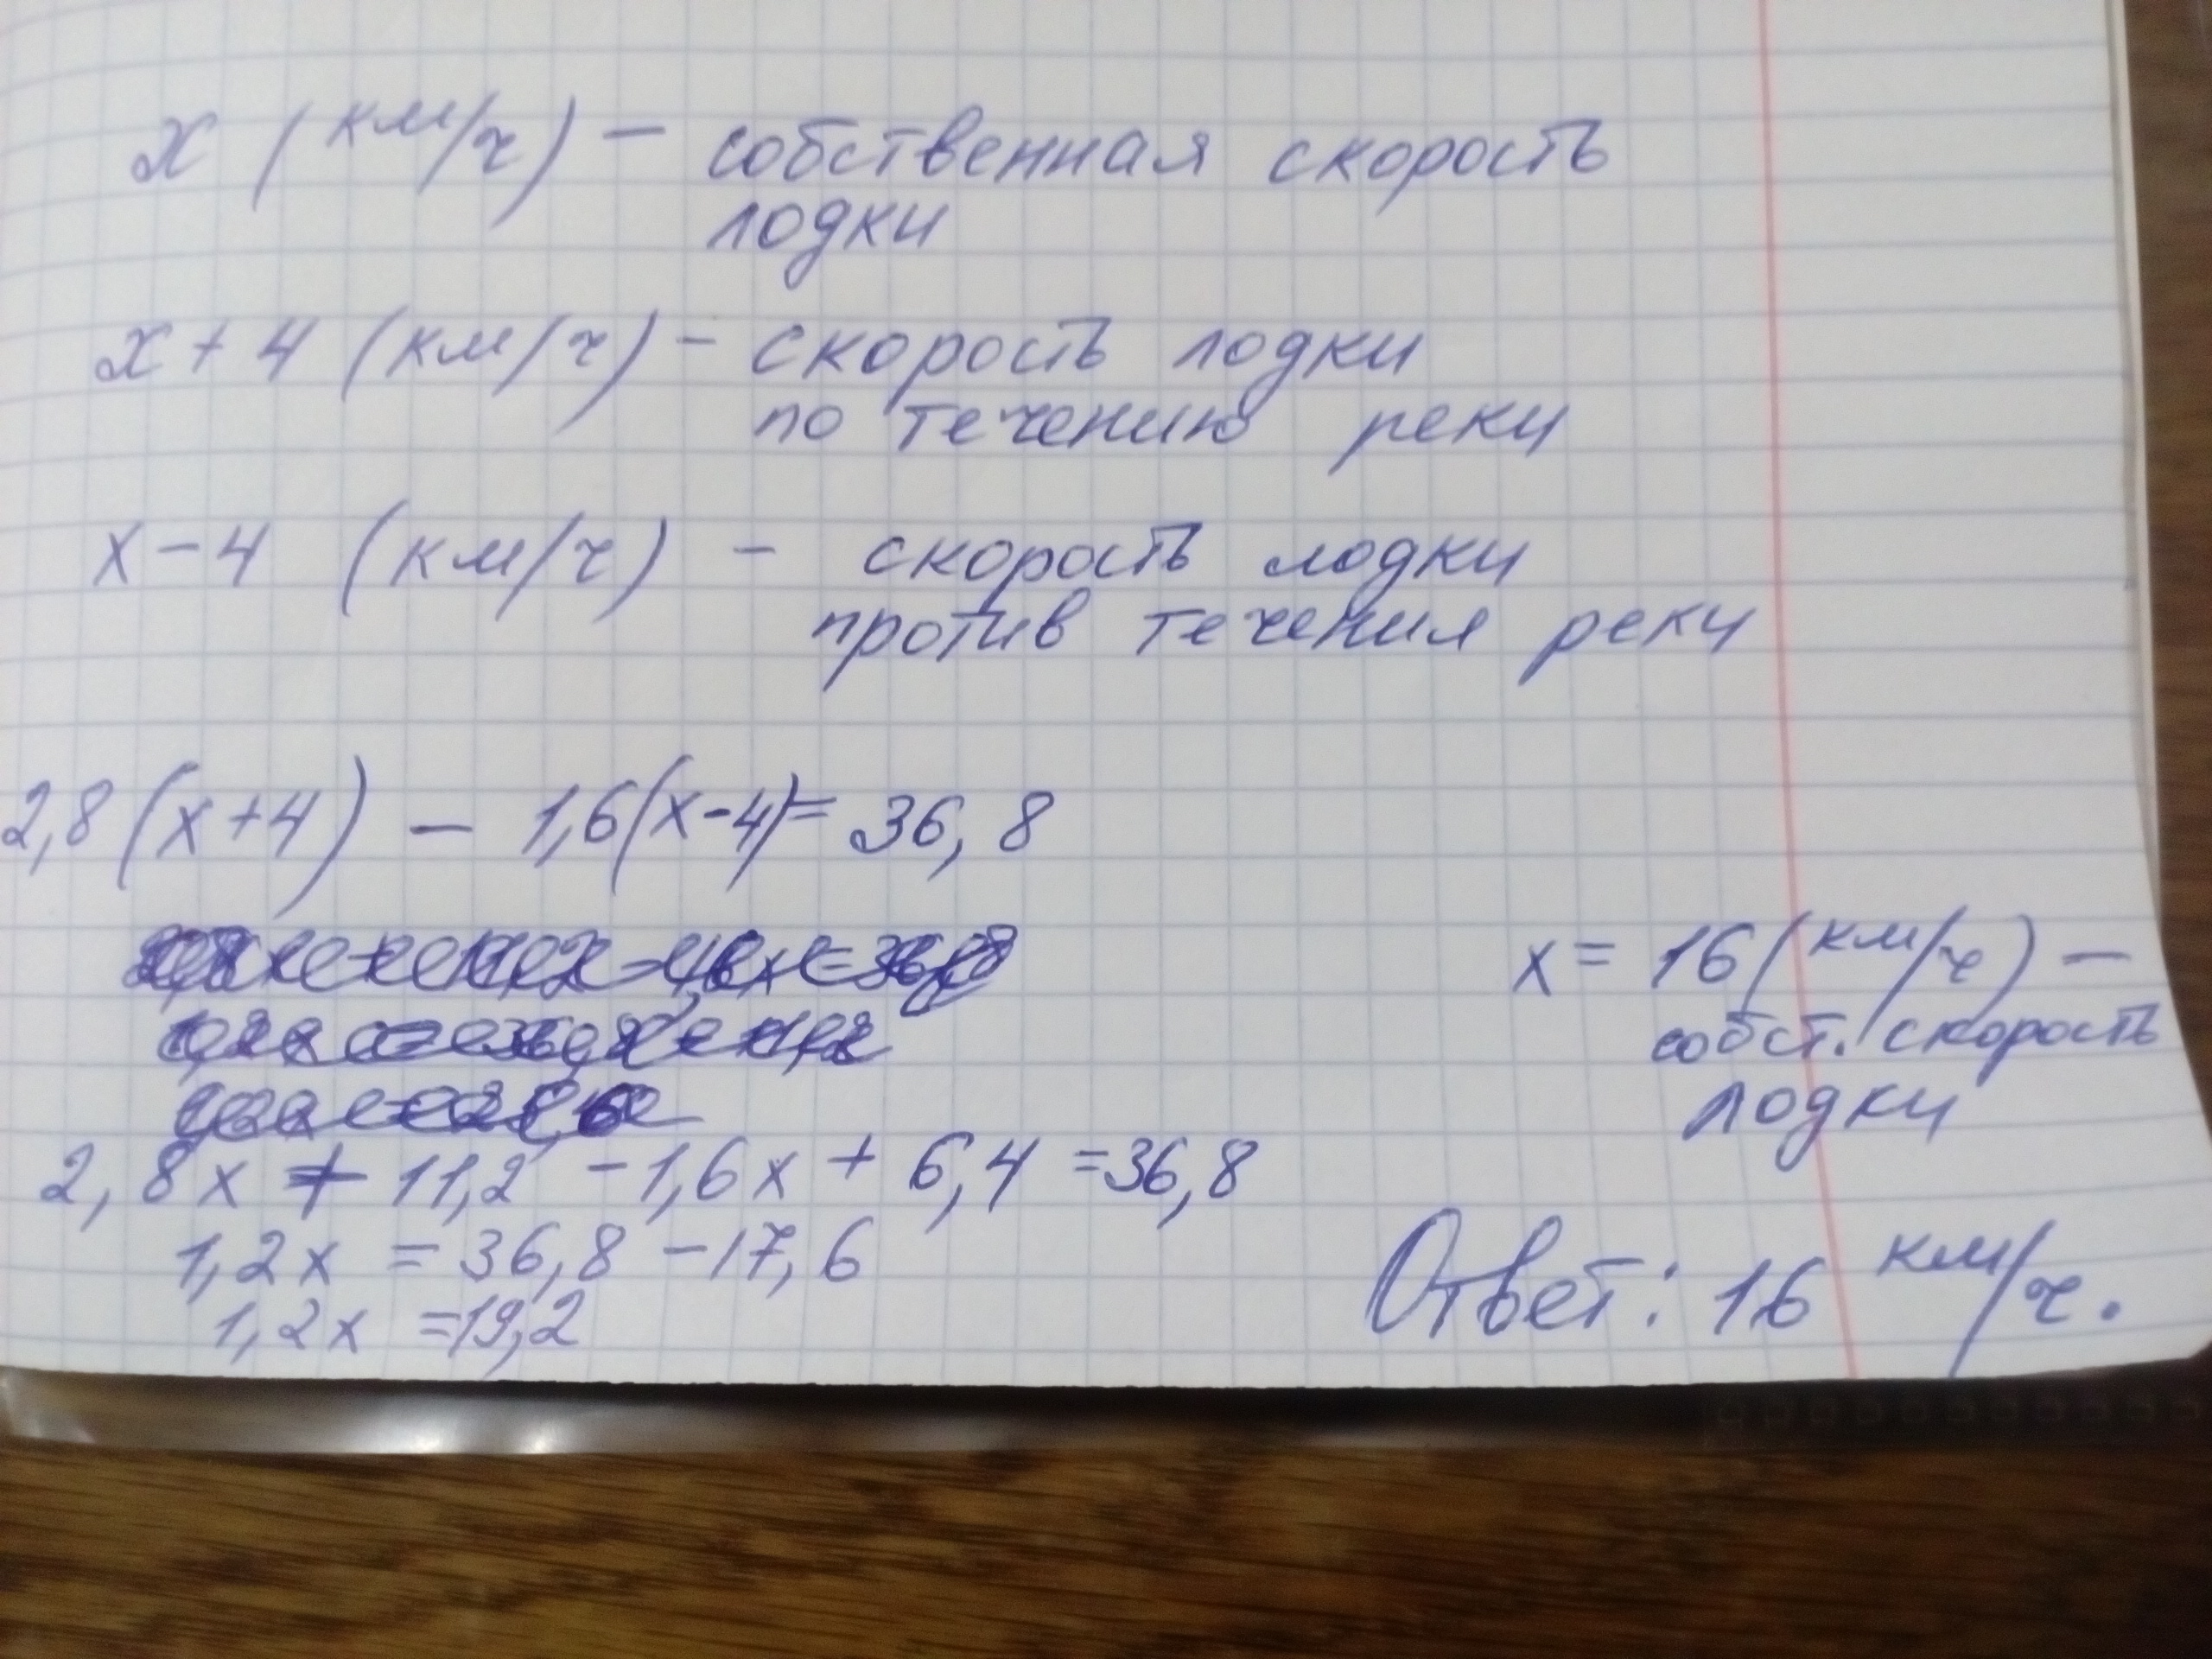 x (км/ч) – собственная скорость
лодки
x + 4 (км/ч) – скорость лодки
по течению реки
x – 4 (км/ч) – скорость лодки
против течения реки
2,8(x+4) – 1,6(x-4)= 36,8
2,8x + 11,2 – 1,6x + 6,4 =36,8
1,2x = 36,8 – 17,6
1,2x =19,2
x = 16 (км/ч) –
собст. скорость
лодки
Ответ: 16 км/ч.